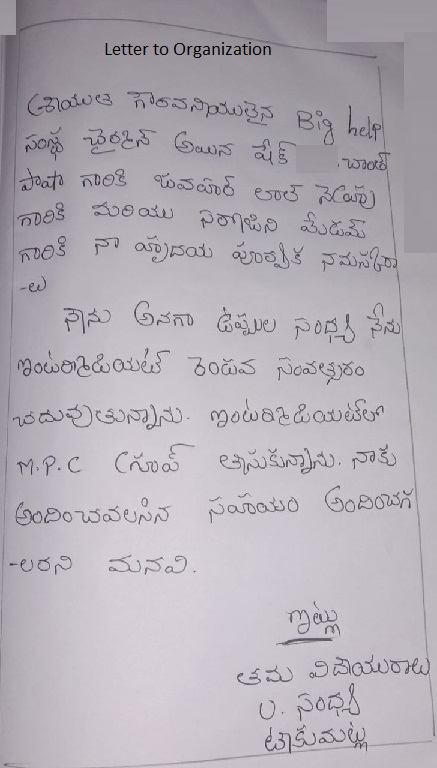 Letter to Organization
శ్రీయుత గౌరవనీయులైన Big help
సంస్థ చైర్మెన్ అయిన షేక్ . చాంద్
పాషా గారికి జవహర్ లాల్ నెహ్రూ
గారికి మరియు సరోజిని మేడమ్
గారికి నా హృదయ పూర్వక నమస్కారా
-లు
నేను అనగా ఉప్పుల సంధ్య నేను
ఇంటర్మీడియట్ రెండవ సంవత్సరం
చదువుతున్నాను. ఇంటర్మీడియట్‌లో
M.P.C గ్రూప్ తీసుకున్నాను. నాకు
అందించవలసిన సహాయం అందించగ
-లరని మనవి.
ఇట్లు
తమ విధేయురాలు
U. సంధ్య